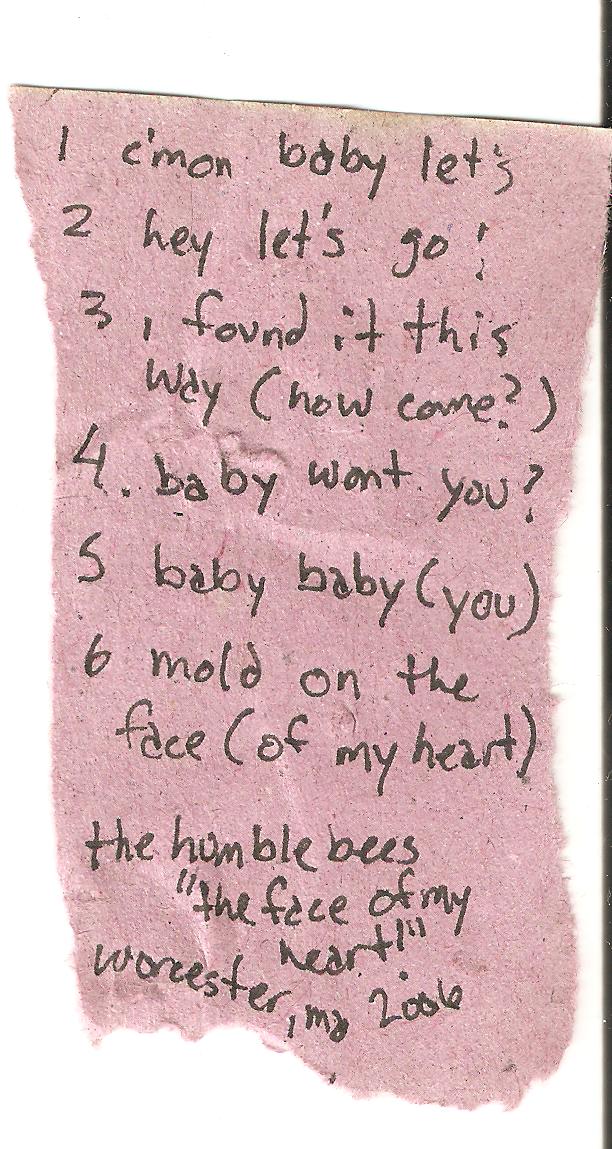 1 c'mon baby let's
2 hey let's go!
3 i found it this
way (how come?)
4. baby wont you?
5 baby baby (you)
6 mold on the
face (of my heart)
the humble bees
"the face of my
heart!"
worcester, ma 2006